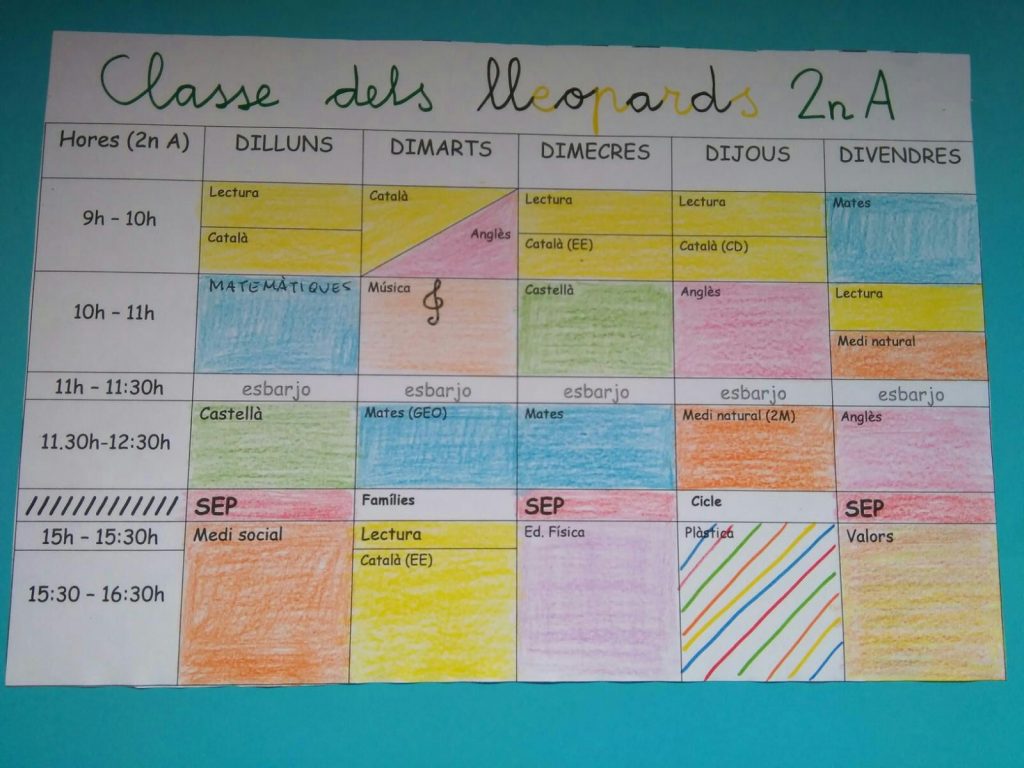 Classe dels lleopards 2n A
Hores (2n A) DILLUNS DIMARTS DIMECRES DIJOUS DIVENDRES
9h - 10h Lectura Català Anglès Lectura Lectura Mates
Català Català (EE) Català (CD)
10h - 11h MATEMÀTIQUES Música Castellà Anglès Lectura
Medi natural
11h - 11:30h esbarjo esbarjo esbarjo esbarjo esbarjo
11.30h-12:30h Castellà Mates (GEO) Mates Medi natural (2M) Anglès
SEP Famílies SEP Cicle SEP
15h - 15:30h Medi social Lectura Ed. Física Plàstica Valors
15:30 - 16:30h Català (EE)